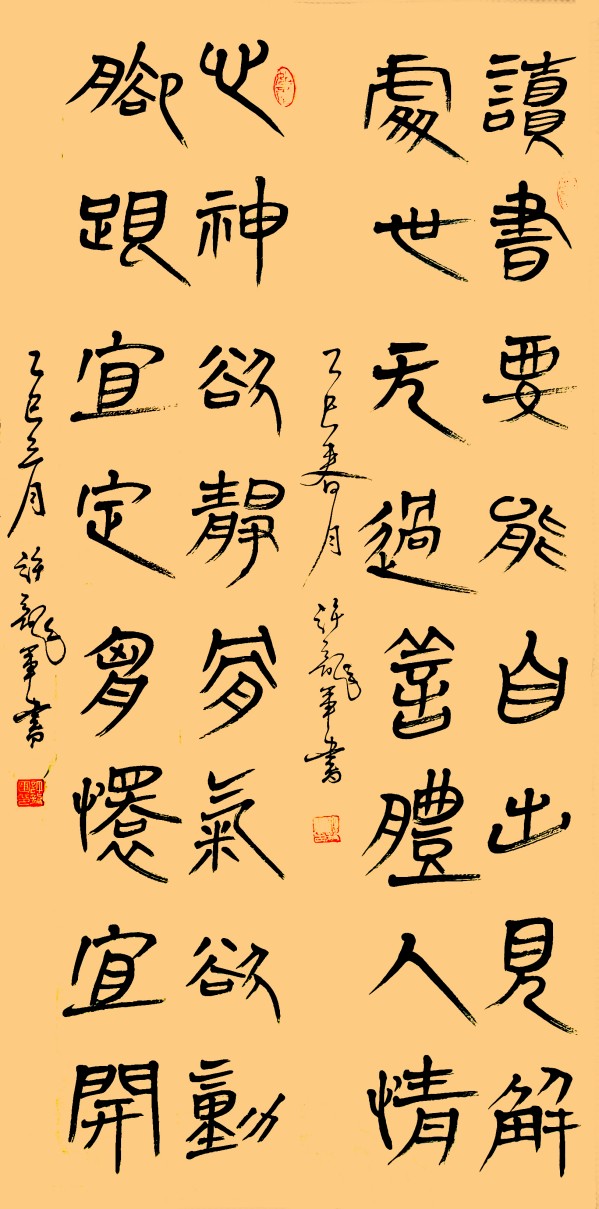 讀書要能自出見解
處世无過善體人情
乙巳春月 許龍軍書
心神欲靜骨氣欲動
腳跟宜定胷懷宜開
乙巳三月 許龍軍書